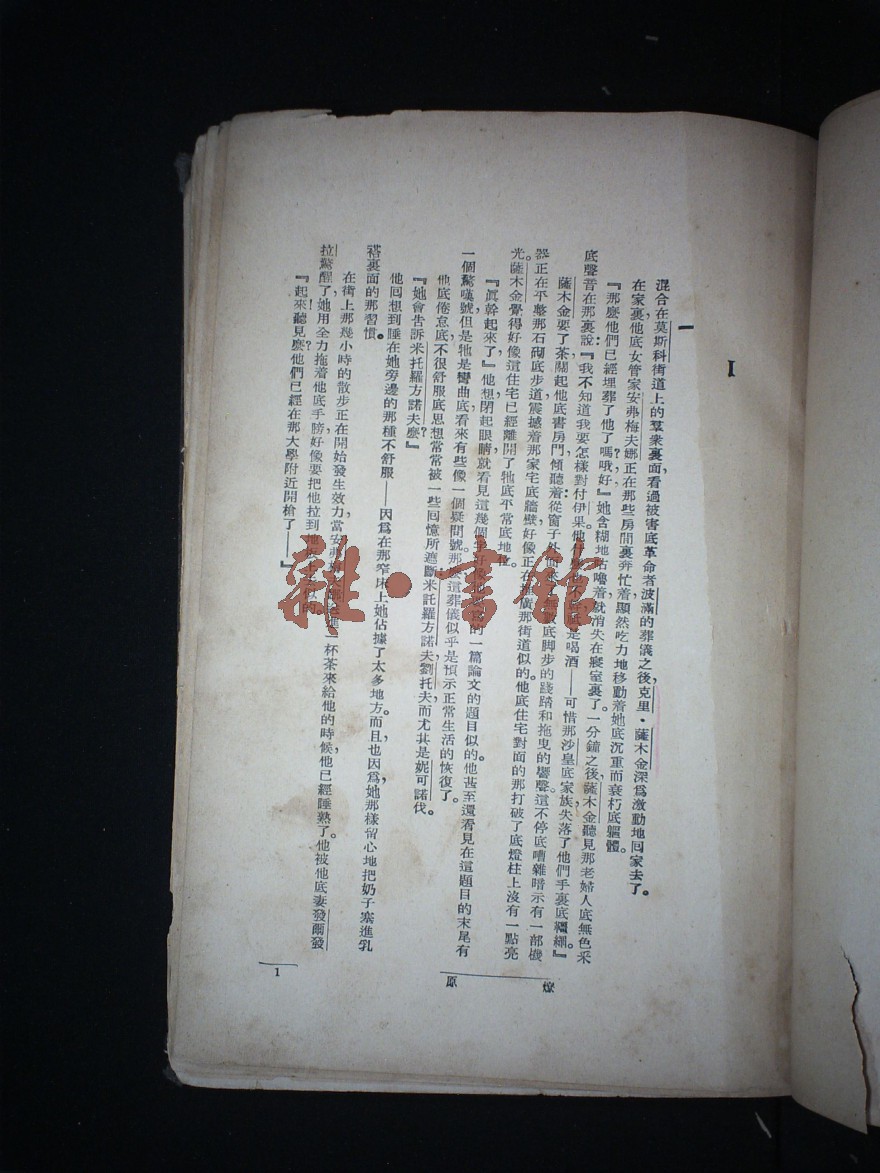 I
一
混合在莫斯科街道上的羣衆裏面看過被害底革命者波滿的葬議之後,克里·薩木金深爲激動地回家去了。
在家裏,他底女管家安弗梅夫娜正在那些房間裏奔忙着,顯然吃力地移動着她底沉重而衰朽底軀體。
『那麼他們已經埋葬了他了嗎?哦好,』她含糊地咕嚕着,就消失在寢室裏了。一分鐘之後,薩木金聽見那老婦人底無色釆
底聲音在那裏說:『我不知道我要怎樣對付伊果他是喝酒——可惜那沙皇底家族失落了他們手裏底繮綑。』
薩木金要了茶,關起他底書房門,傾聽着從窗子外面底脚步的踐踏和拖曳的響聲。這不停底嘈雜暗示有一部機
器正在平整那石砌底步道,震撼着那家宅底牆壁,好像正在推廣那街道似的。他底住宅對面的那打破了底燈柱上沒有一點亮
光。薩木金覺得好像這住宅已經離開了牠底平常底地位。
『眞幹起來了,』他想,閉起眼睛,就看見這幾個字好像的一篇論文的題目似的。他甚至還看見在這題目的末尾有
一個驚嘆號,但是牠是彎曲底,看來有些像一個疑問號。那麼這葬儀似乎是預示正常生活的恢復了。
他底倦怠底,不很舒服底思想常常被一些回憶所遮斷,米託羅方諾夫,劉托夫,而尤其是妮可諾伐。
『她會告訴米托羅方諾夫麼?』
他回想到睡在她旁邊的那種不舒服——因爲在那窄床上她佔據了太多地方。而且也因爲她那樣留心地把奶子塞進乳
褡裏面的那習慣。
在街上那幾小時的散步正在開始發生效力,當安弗一杯茶來給他的時候,他已經睡熟了。他被他底妻發爾發
拉驚醒了,她用全力拖着他底手膀,好像要把他拉到地板上似的。
『起來!聽見麼?他們已經在那大學附近開槍了——』
燎原
1
雜·書館